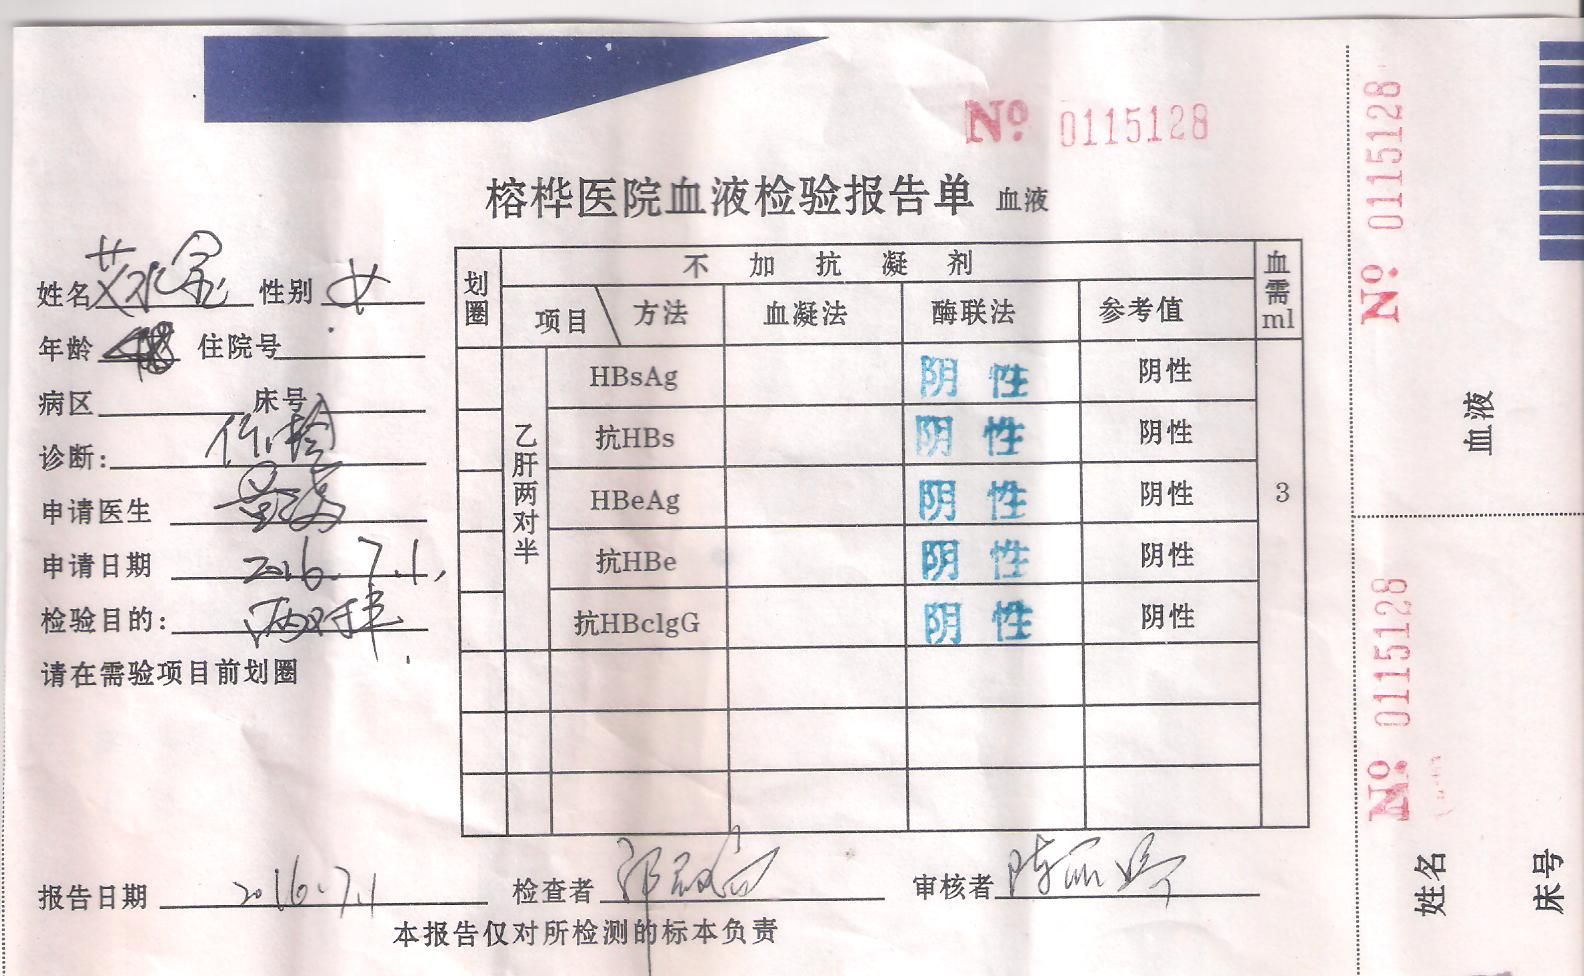 No. 0115128
榕桦医院血液检验报告单 血液
姓名 性别 女
年龄 住院号
病区 床号
诊断:
申请医生
申请日期 2016.7.1
检验目的: 两对半
请在需验项目前划圈
划圈 不加抗凝剂 血需ml
项目 方法 血凝法 酶联法 参考值
乙肝两对半
HBsAg 阴性 阴性
抗HBs 阴性 阴性
HBeAg 阴性 阴性 3
抗HBe 阴性 阴性
抗HBclgG 阴性 阴性
报告日期 2016.7.1 检查者 审核者
本报告仅对所检测的标本负责
No. 0115128
血液
No. 0115128
姓名
床号